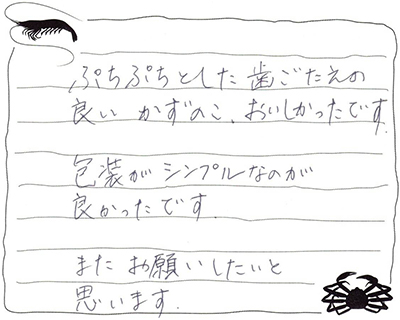 ぷちぷちとした歯ごたえの
良い かずのこ、おいしかったです.
包装が シンプルなのが
良かったです.
また お願いしたいと
思います.